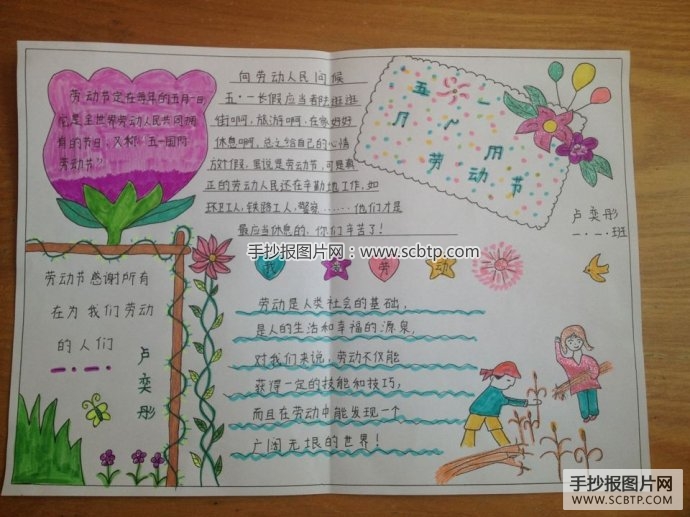 劳动节定在每年的五月一日
它是全世界劳动人民共同拥
有的节日，又称“五一国际
劳动节”
向劳动人民问候
五·一长假应当者陪逛逛
街啊，旅游啊，在家好好
休息啊，总之给自己的心情
放个假，虽说是劳动节，可是真
正的劳动人民还在辛勤地工作，如
环卫工人，铁路工人，警察……他们才是
最应当休息的，你们辛苦了！
五一
劳动节
卢奕彤
一·一·班
手抄报图片网：www.scbtp.com
我 爱 劳 动
劳动节感谢所有
在为我们劳动
的人们
卢奕彤
劳动是人类社会的基础，
是人的生活和幸福的源泉，
对我们来说，劳动不仅能
获得一定的技能和技巧，
而且在劳动中能发现一个
广阔无垠的世界！
手抄报图片网
WWW.SCBTP.COM